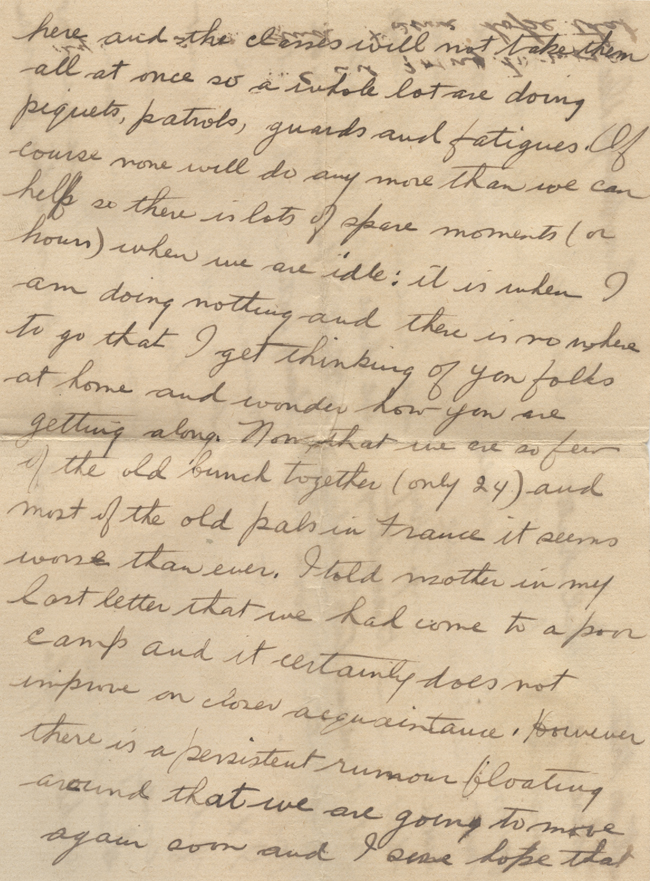 here and the classes will not take them
all at once so a whole lot are doing
piquets, patrols, guards and fatigues. Of
course none will do any more than we can
help so there is lots of spare moments (or
hours) when we are idle: it is when I
am doing nothing and there is no where
to go that I get thinking of you folks
at home and wonder how you are
getting along. Now that we are so few
of the old bunch together (only 24) and
most of the old pals in France it seems
worse than ever. I told mother in my
last letter that we had come to a poor
camp and it certainly does not
improve on closer acquaintance. However
there is a persistent rumour floating
around that we are going to move
again soon and I sure hope that